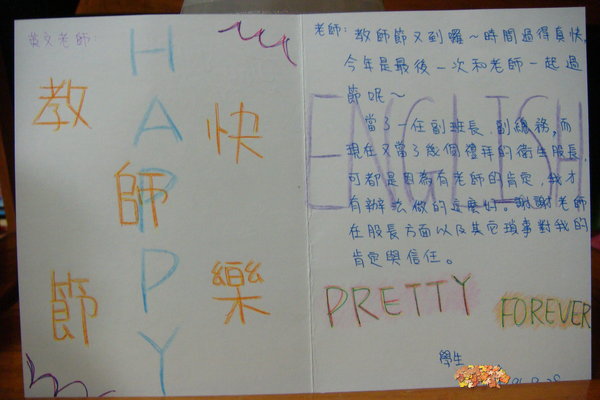 英文老師:
HAPPY
教師節
快樂
老師: 教師節又到囉～時間過得真快,
今年是最後一次和老師一起過
節呢～
ENGLISH
當了一任副班長、副總務,而
現在又當了幾個禮拜的衛生股長,
可都是因為有老師的肯定,我才
有辦法做的這麼好。謝謝老師
在股長方面以及其它瑣事對我的
肯定與信任。
PRETTY
FOREVER
學生